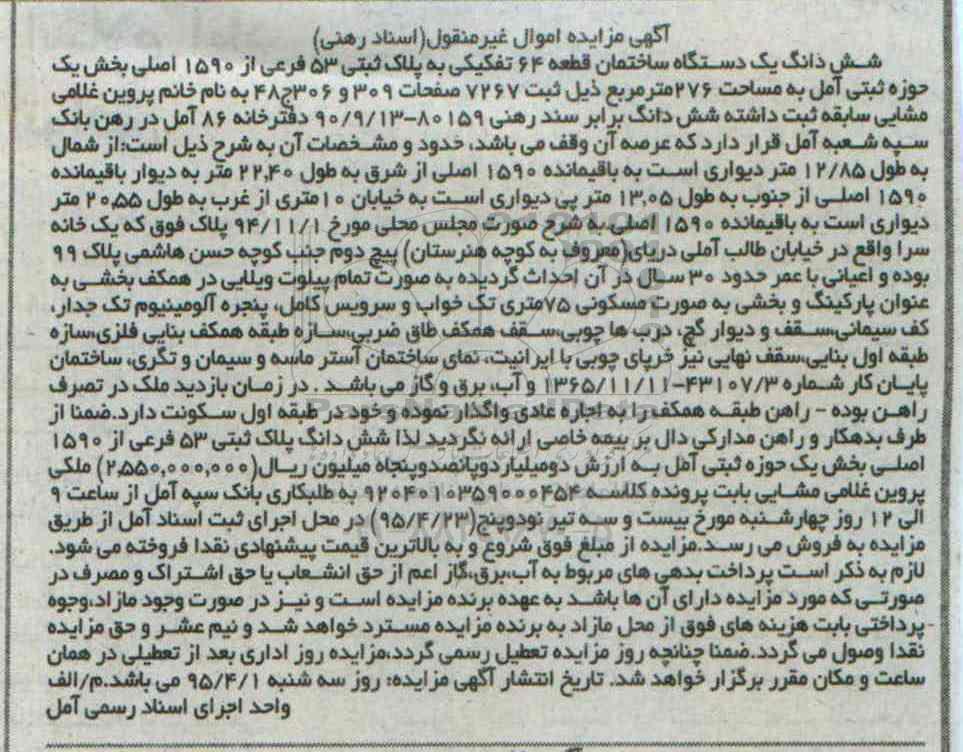 آگهی مزایده اموال غیرمنقول(اسناد رهنی)
شش دانگ یک دستگاه ساختمان قطعه ۶۴ تفکیکی به پلاک ثبتی ۵۳ فرعی از ۱۵۹۰ اصلی بخش یک
حوزه ثبتی آمل به مساحت ۲۷۶مترمربع ذیل ثبت ۷۲۶۷ صفحات ۳۰۹ و ۳۰۶ج۴۸ به نام خانم پروین غلامی
مشایی سابقه ثبت داشته شش دانگ برابر سند رهنی ۸۰۱۵۹-۹۰/۹/۱۳ دفترخانه ۸۶ آمل در رهن بانک
سپه شعبه آمل قرار دارد که عرصه آن وقف می باشد، حدود و مشخصات آن به شرح ذیل است:از شمال
به طول ۱۲/۸۵ متر دیواری است به باقیمانده ۱۵۹۰ اصلی از شرق به طول ۲۲,۴۰ متر به دیوار باقیمانده
۱۵۹۰ اصلی از جنوب به طول ۱۳,۰۵ متر پی دیواری است به خیابان ۱۰متری از غرب به طول ۲۰,۵۵ متر
دیواری است به باقیمانده ۱۵۹۰ اصلی.به شرح صورت مجلس محلی مورخ ۹۴/۱۱/۱ پلاک فوق که یک خانه
سرا واقع در خیابان طالب آملی دریای(معروف به کوچه هنرستان) پیچ دوم جنب کوچه حسن هاشمی پلاک ۹۹
بوده و اعیانی با عمر حدود ۳۰ سال در آن احداث گردیده به صورت تمام پیلوت ویلایی در همکف بخشی به
عنوان پارکینگ و بخشی به صورت مسکونی ۷۵متری تک خواب و سرویس کامل، پنجره آلومینیوم تک جدار،
کف سیمانی،سقف و دیوار گچ، درب ها چوبی،سقف همکف طاق ضربی،سازه طبقه همکف بنایی فلزی،سازه
طبقه اول بنایی،سقف نهایی نیز خرپای چوبی با ایرانیت، نمای ساختمان آستر ماسه و سیمان و تگری، ساختمان
پایان کار شماره ۴۳۱۰۷/۳-۱۳۶۵/۱۱/۱۱ و آب، برق و گاز می باشد . در زمان بازدید ملک در تصرف
راهن بوده - راهن طبقه همکف را به اجاره عادی واگذار نموده و خود در طبقه اول سکونت دارد.ضمنا از
طرف بدهکار و راهن مدارکی دال بر بیمه خاصی ارائه نگردید لذا شش دانگ پلاک ثبتی ۵۳ فرعی از ۱۵۹۰
اصلی بخش یک حوزه ثبتی آمل به ارزش دومیلیاردوپانصدوپنجاه میلیون ریال(۲,۵۵۰,۰۰۰,۰۰۰) ملکی
پروین غلامی مشایی بابت پرونده کلاسه ۹۲۰۴۰۱۰۳۵۹۰۰۰۴۵۴ به طلبکاری بانک سپه آمل از ساعت ۹
الی ۱۲ روز چهارشنبه مورخ بیست و سه تیر نودوپنج(۹۵/۴/۲۳) در محل اجرای ثبت اسناد آمل از طریق
مزایده به فروش می رسد.مزایده از مبلغ فوق شروع و به بالاترین قیمت پیشنهادی نقدا فروخته می شود.
لازم به ذکر است پرداخت بدهی های مربوط به آب،برق،گاز اعم از حق انشعاب یا حق اشتراک و مصرف در
صورتی که مورد مزایده دارای آن ها باشد به عهده برنده مزایده است و نیز در صورت وجود مازاد،وجوه
پرداختی بابت هزینه های فوق از محل مازاد به برنده مزایده مسترد خواهد شد و نیم عشر و حق مزایده
نقدا وصول می گردد.ضمنا چنانچه روز مزایده تعطیل رسمی گردد،مزایده روز اداری بعد از تعطیلی در همان
ساعت و مکان مقرر برگزار خواهد شد. تاریخ انتشار آگهی مزایده: روز سه شنبه ۹۵/۴/۱ می باشد.م/الف
واحد اجرای اسناد رسمی آمل